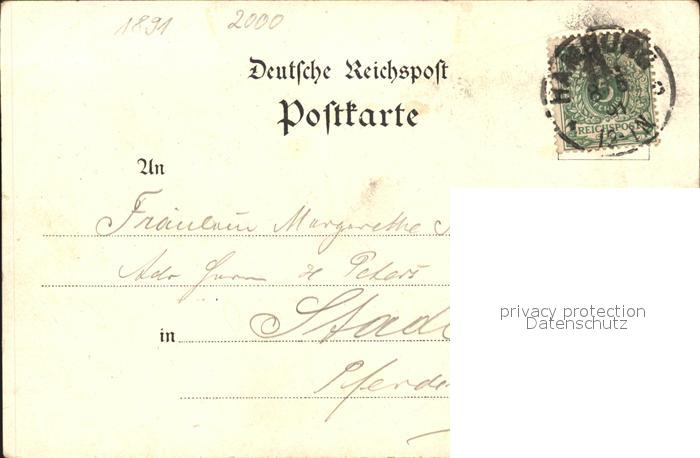 1891 2000
Deutsche Reichspost
Postkarte
HAMBURG
5
REICHSPOST
12-1N
An
Fräulein Margarethe
Adr Herrn H Peters
in Stade
Pferde
privacy protection
Datenschutz